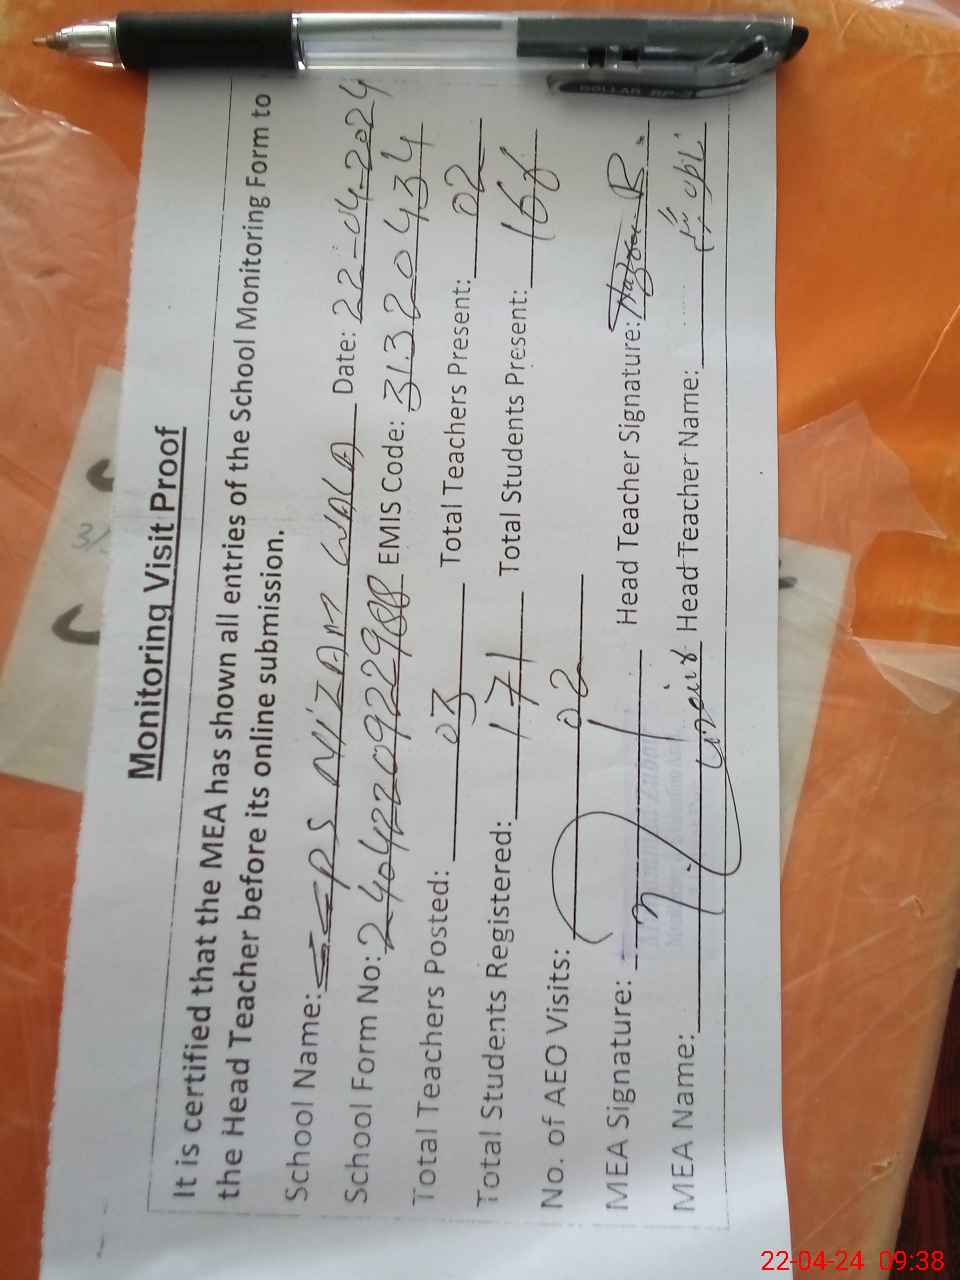 Monitoring Visit Proof
It is certified that the MEA has shown all entries of the School Monitoring Form to
the Head Teacher before its online submission.
School Name: PS NIZAM WALA Date: 22-04-2024
School Form No: 2404220922988 EMIS Code: 31320434
Total Teachers Posted: 03 Total Teachers Present: 02
Total Students Registered: 171 Total Students Present: 166
No. of AEO Visits: 02
MEA Signature: Head Teacher Signature:
MEA Name: Head Teacher Name:
DOLLAR
22-04-24 09:38